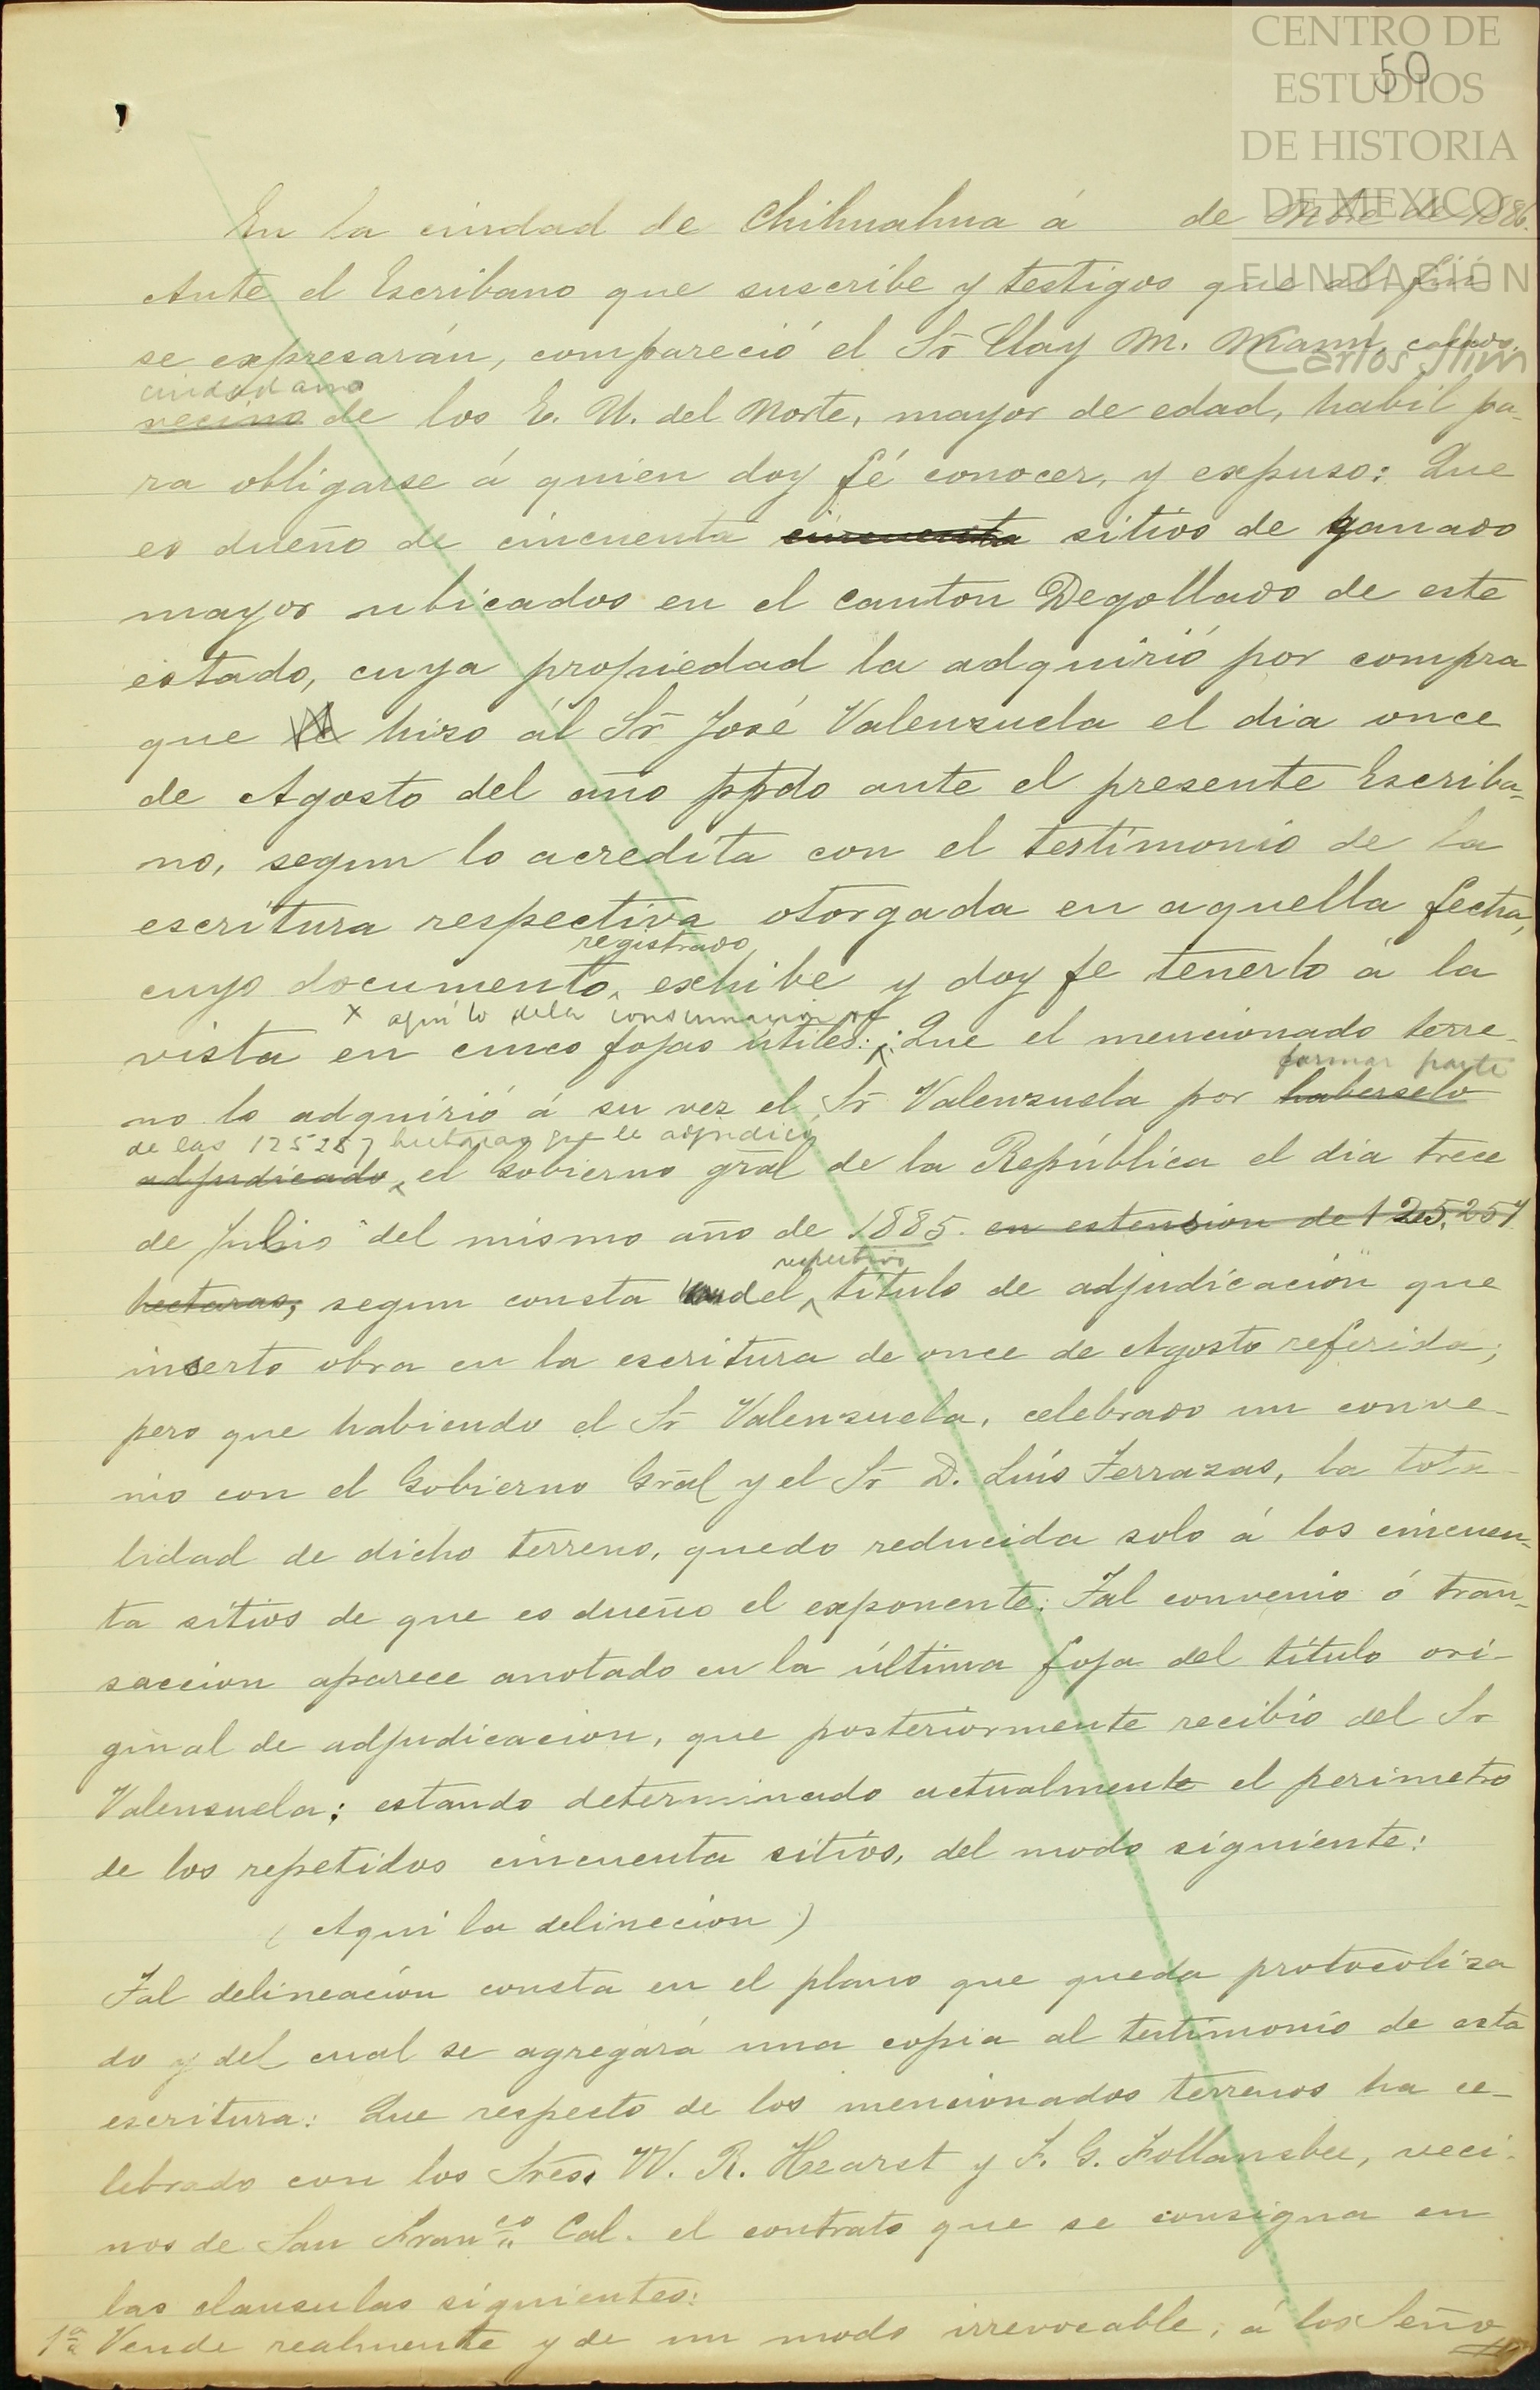 CENTRO DE
ESTUDIOS
DE HISTORIA
DE MEXICO
FUNDACIÓN
Carlos Slim
50
En la ciudad de Chihuahua á de Nbre de 1886.
Ante el Escribano que suscribe y testigos que al fin
se expresarán, compareció el Sr Clay M. Mann, casado,
ciudadano
vecino de los E. U. del Norte, mayor de edad, habil pa-
ra obligarse á quien doy fé conocer, y expuso: Que
es dueño de cincuenta cincuenta sitios de ganado
mayor ubicados en el canton Degollado de este
estado, cuya propiedad la adquirió por compra
que le hizo ál Sr José Valenzuela el dia once
de Agosto del año ppdo ante el presente Escriba-
no, segun lo acredita con el testimonio de la
escritura respectiva otorgada en aquella fecha,
registrado
cuyo documento, exhibe y doy fe tenerlo á la
x aquí lo de la consumacion
vista en cinco fojas útiles: Que el mencionado terre-
formar parte
no lo adquirió á su vez el Sr Valenzuela por haberselo
de las 125287 hectaras que le adjudicó
adjudicado, el Gobierno gral de la República el dia trece
de Julio del mismo año de 1885. en estension de 125,257
hectaras, segun consta del titulo de adjudicación que
respectivo
inserto obra en la escritura de once de Agosto referida;
pero que habiendo el Sr Valenzuela, celebrado un conve-
nio con el Gobierno Gral y el Sr D. Luis Terrazas, la tota-
lidad de dicho terreno, quedo reducida solo á los cincuen-
ta sitios de que es dueño el exponente: Tal convenio ó tran-
saccion aparece anotado en la última foja del título ori-
ginal de adjudicacion, que posteriormente recibio del Sr
Valensuela; estando determinado actualmente el perimetro
de los repetidos cincuenta sitios, del modo siguiente:
( Aqui la delinecion )
Tal delineación consta en el plano que queda protocoliza
do y del cual se agregará una copia al testimonio de esta
escritura: Que respecto de los mencionados terrenos ha ce-
lebrado con los Sres. W. R. Hearst y F. G. Follansbee, veci-
nos de San Franco Cal. el contrato que se consigna en
las clausulas siguientes:
1a Vende realmente y de un modo irrevocable, á los Seño